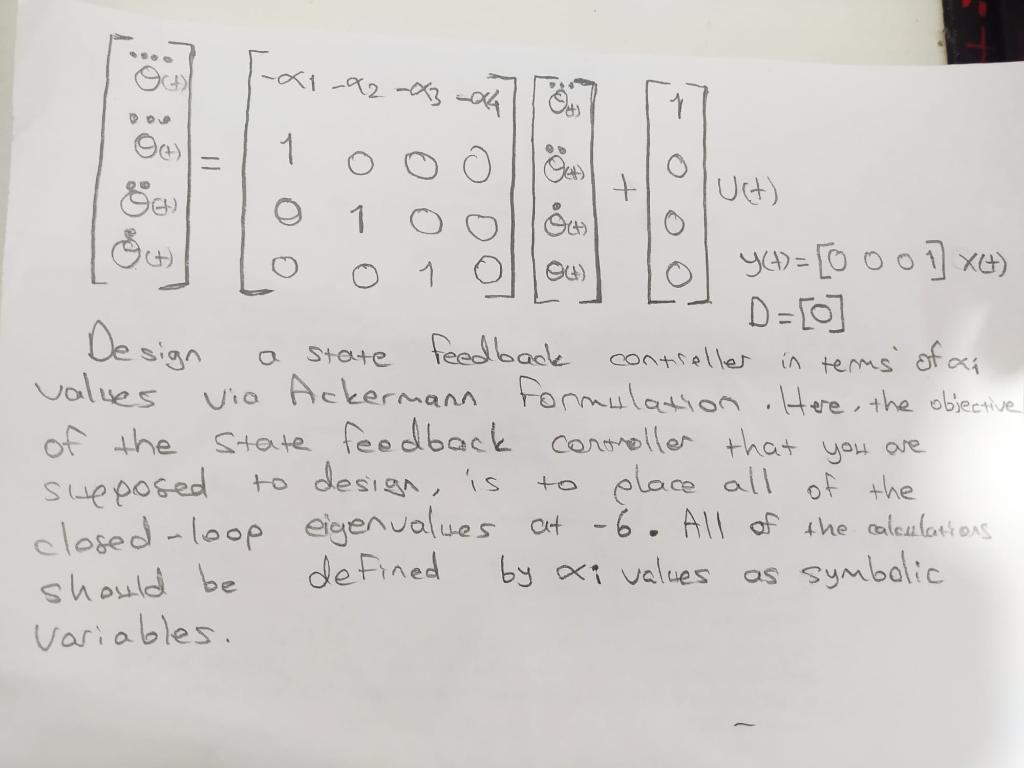 [θ⃜(t) θ⃛(t) θ̈(t) θ̇(t)] = [-α1 -α2 -α3 -α4; 1 0 0 0; 0 1 0 0; 0 0 1 0] [θ⃛(t) θ̈(t) θ̇(t) θ(t)] + [1 0 0 0] U(t)
y(t) = [0 0 0 1] x(t)
D = [0]
Design a state feedback controller in terms of αi
values via Ackermann Formulation. Here, the objective
of the state feedback controller that you are
supposed to design, is to place all of the
closed-loop eigenvalues at -6. All of the calculations
should be defined by αi values as symbolic
variables.